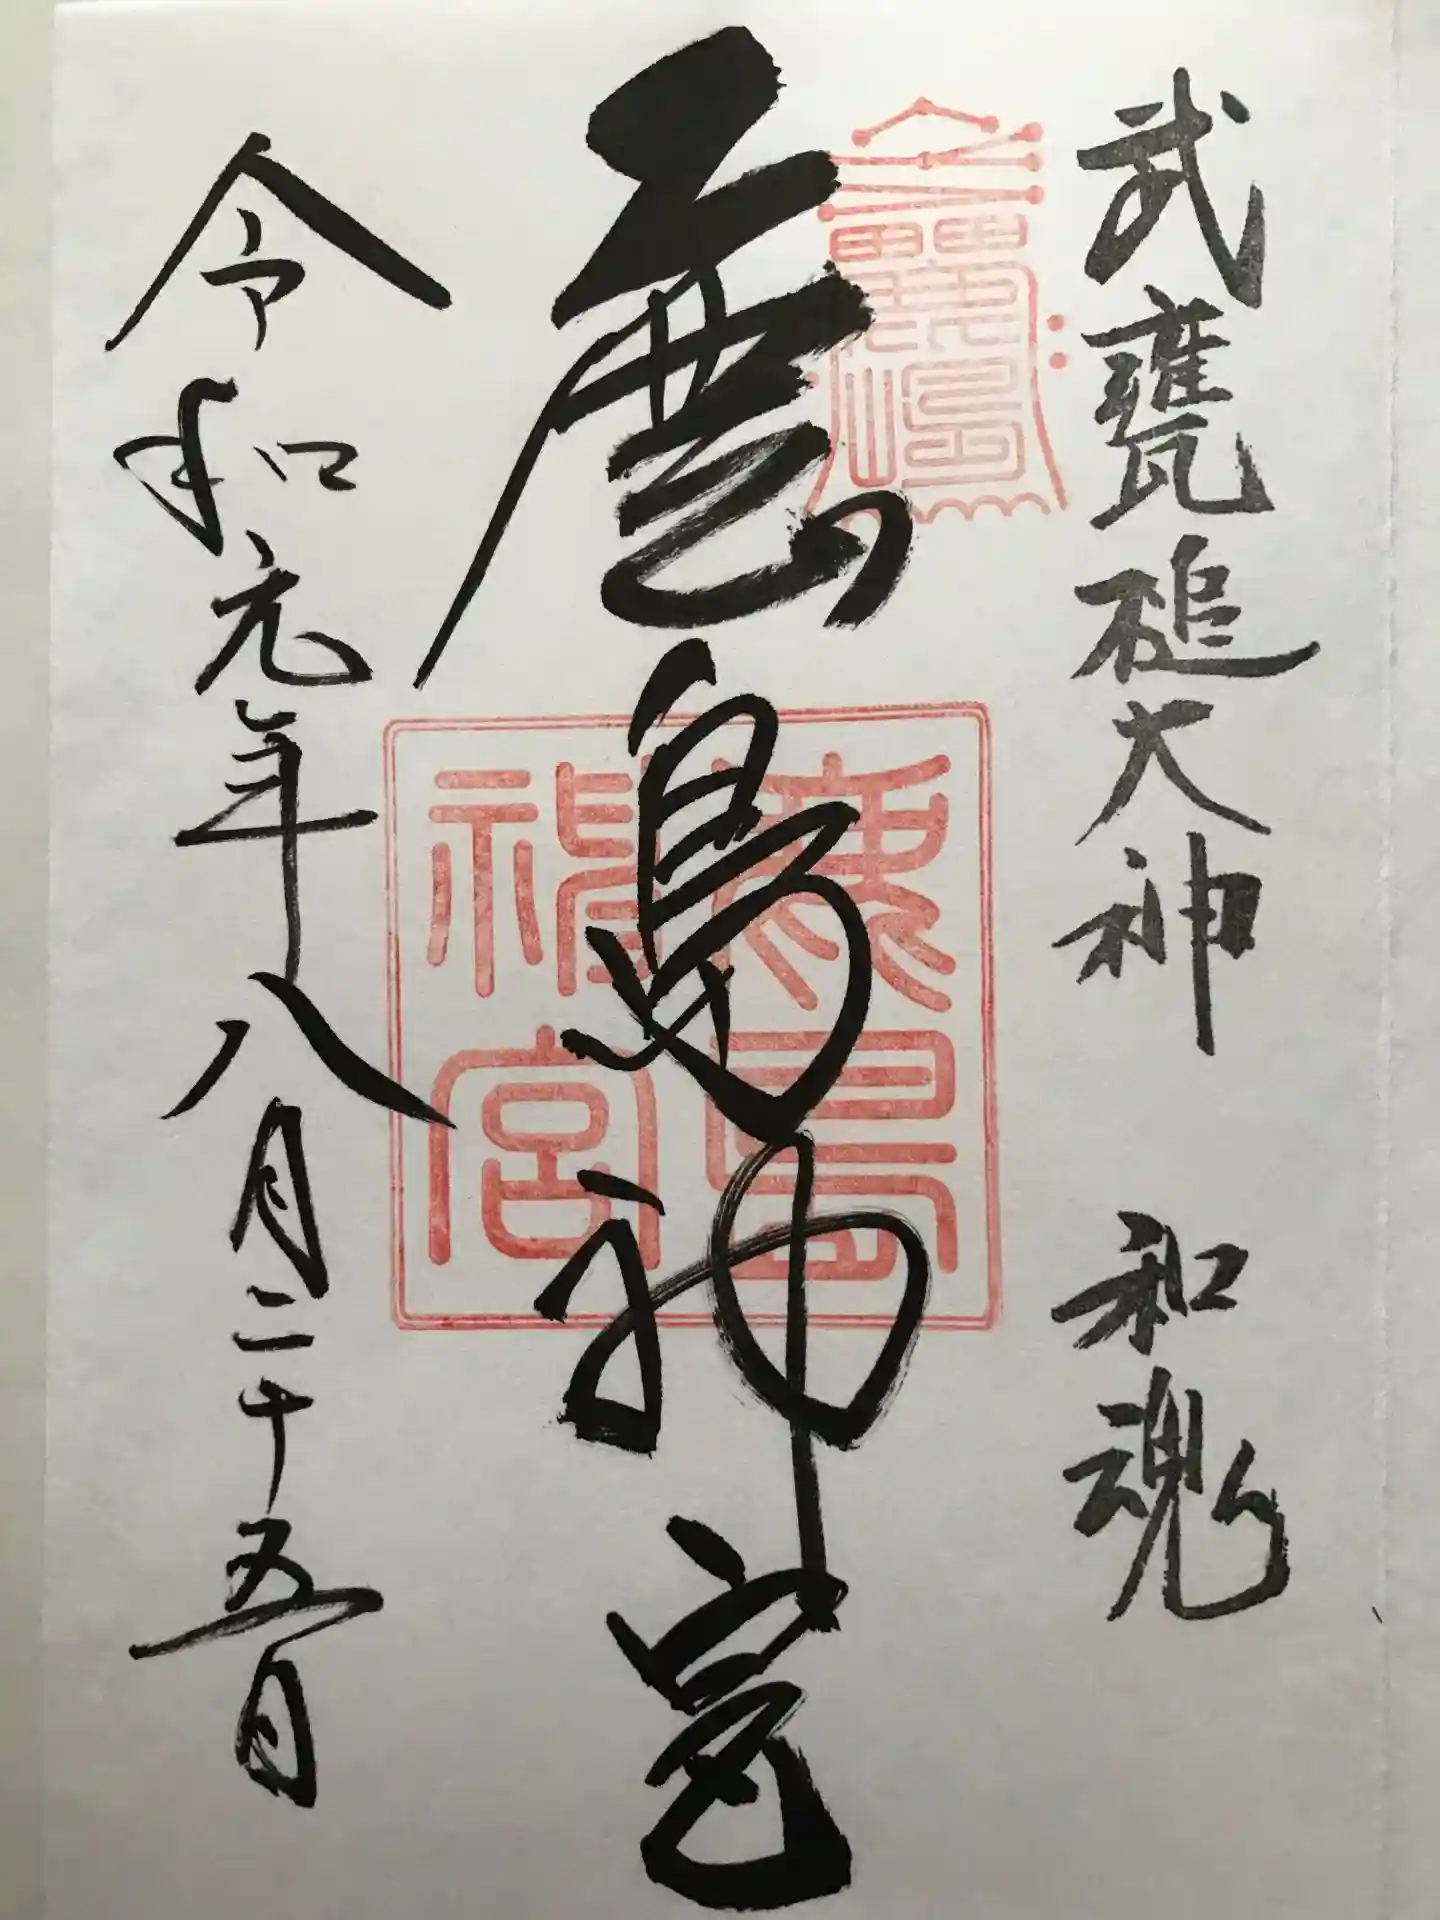 武甕槌大神 和魂
鹿島神宮
令和元年八月二十五日
鹿島
神宮